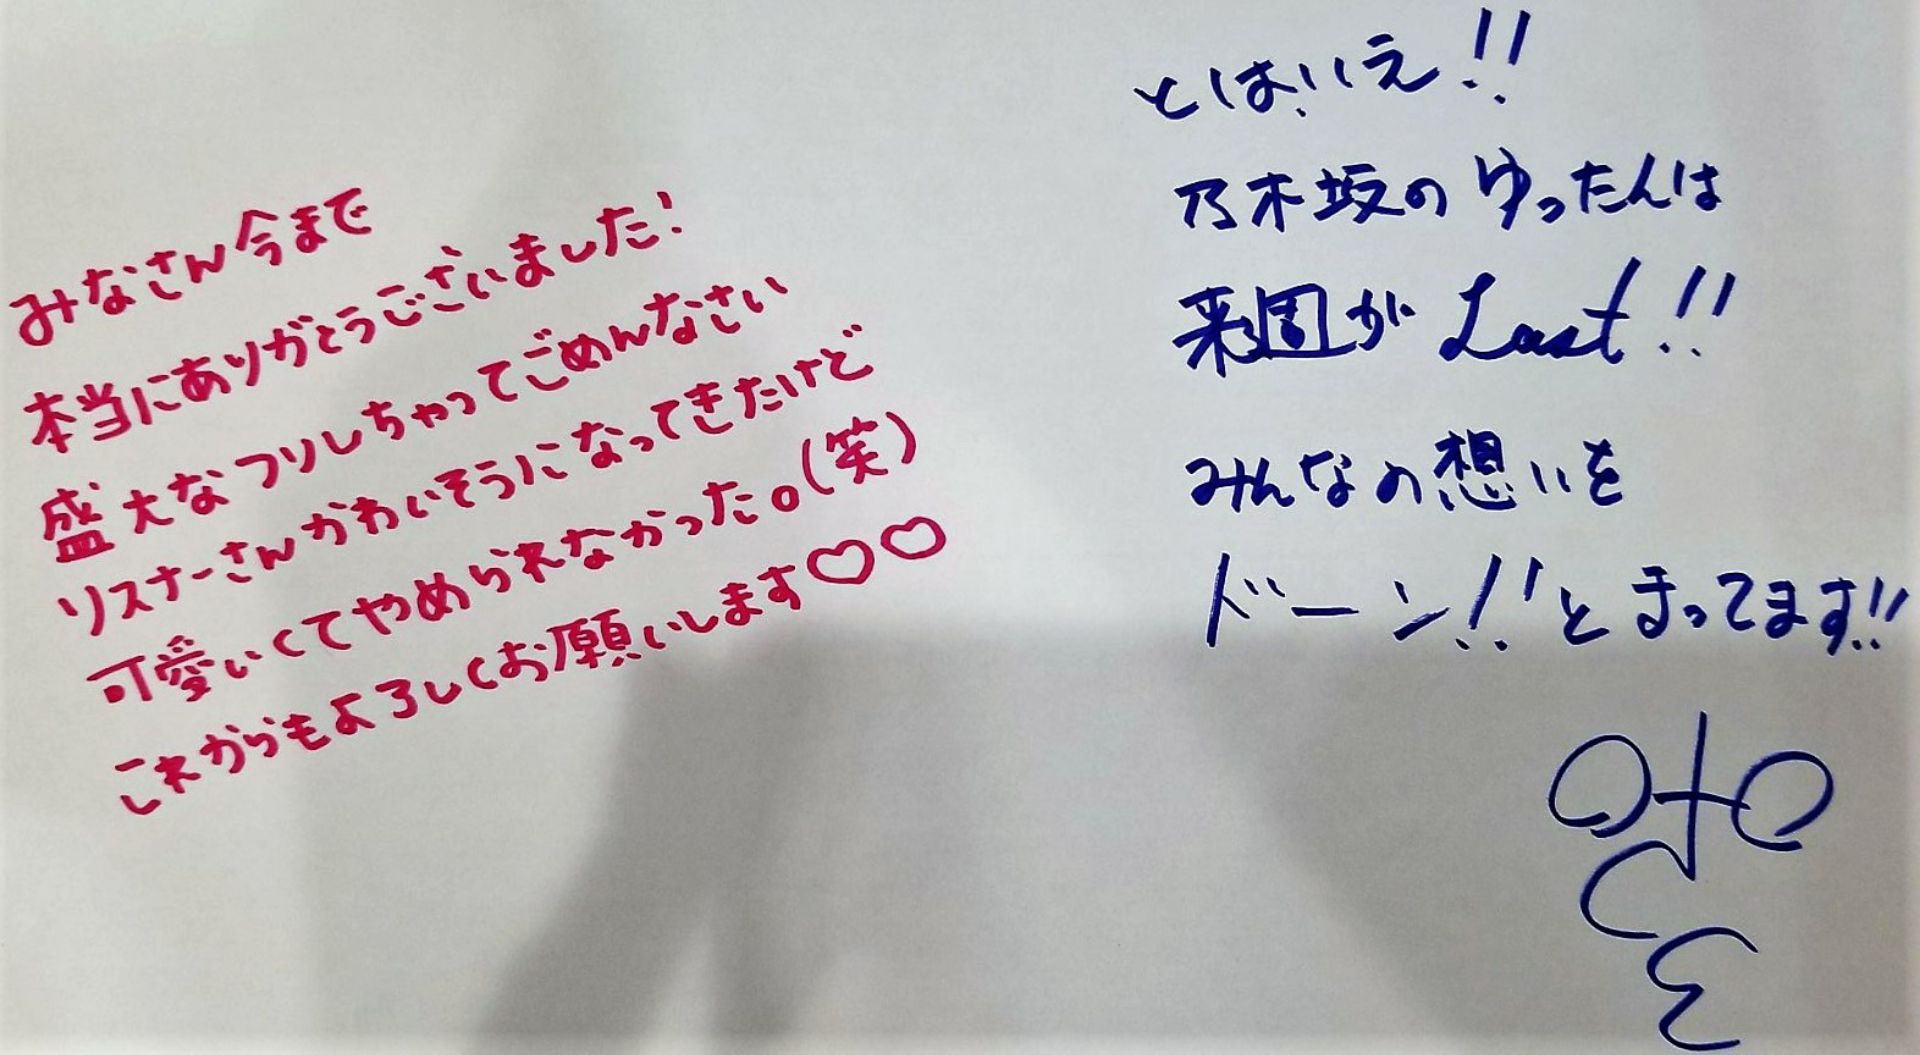 みなさん今まで
本当にありがとうございました!
盛大なフリしちゃってごめんなさい
リスナーさんかわいそうになってきたけど
可愛いくてやめられなかった。(笑)
これからもよろしくお願いします♡♡
とはいえ!!
乃木坂のゆったんは
来週がLast!!
みんなの想いを
ドーン!!とまってます!!